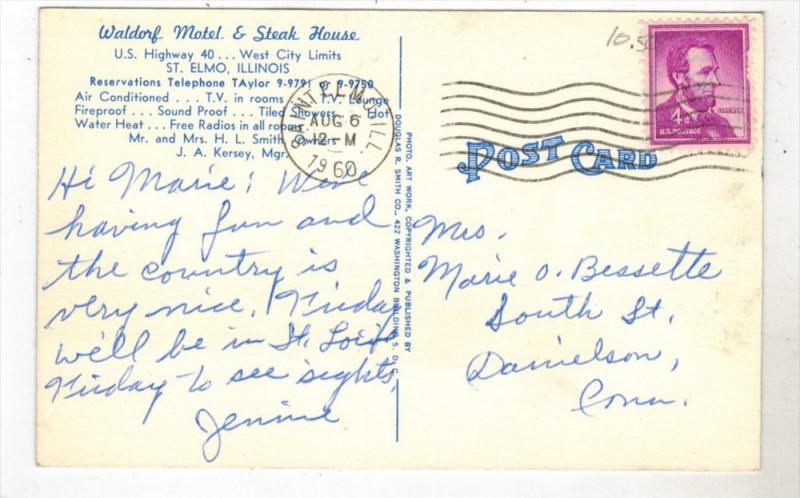 Waldorf Motel & Steak House
U.S. Highway 40 . . . West City Limits
ST. ELMO, ILLINOIS
Reservations Telephone TAylor 9-9791 or 9-9750
Air Conditioned . . . T.V. in rooms . . . T.V. Lounge
Fireproof . . . Sound Proof . . . Tiled Showers . . . Hot
Water Heat . . . Free Radios in all rooms
Mr. and Mrs. H. L. Smith, Owners
J. A. Kersey, Mgr.
SAINT ELMO ILL.
AUG 6
12-M
1960
Hi Marie; We're
having fun and
the country is
very nice. Friday
we'll be in St. Louis
Friday to see sights,
Jennie
PHOTO, ART WORK, COPYRIGHTED & PUBLISHED BY
DOUGLAS R. SMITH CO., 422 WASHINGTON BUILDING
10.50
4¢
LINCOLN
U.S. POSTAGE
POST CARD
Mrs.
Marie O. Bessette
South St.
Danielson,
Conn.